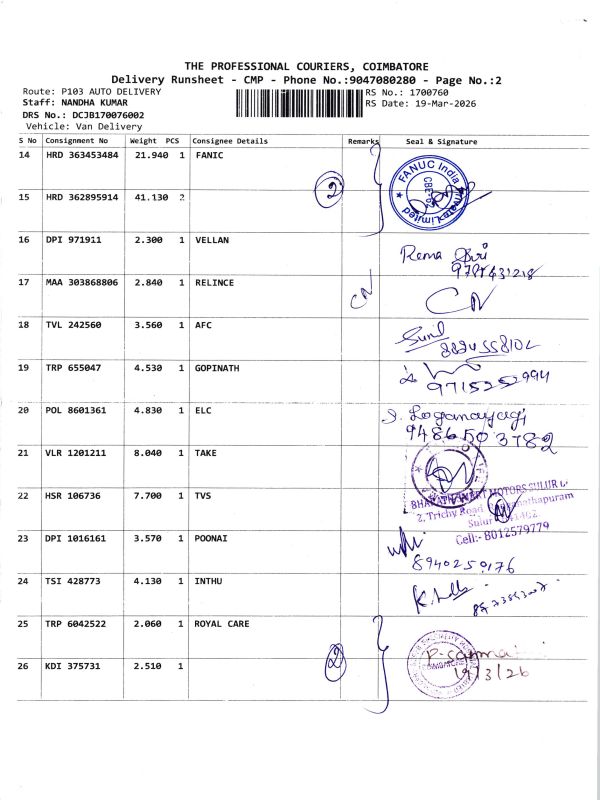 THE PROFESSIONAL COURIERS, COIMBATORE
Delivery Runsheet - CMP - Phone No.:9047080280 - Page No.:2
Route: P103 AUTO DELIVERY
RS No.: 1700760
Staff: NANDHA KUMAR
RS Date: 19-Mar-2026
DRS No.: DCJB170076002
Vehicle: Van Delivery
S No Consignment No Weight PCS Consignee Details Remarks Seal & Signature
14 HRD 363453484 21.940 1 FANIC
FANUC India
2
15 HRD 362895914 41.130 2
16 DPI 971911 2.300 1 VELLAN
Rema
17 MAA 303868806 2.840 1 RELINCE CN CN
18 TVL 242560 3.560 1 AFC
Sunil
19 TRP 655047 4.530 1 GOPINATH
9715252994
20 POL 8601361 4.830 1 ELC
S. Loganayagi
9486503782
21 VLR 1201211 8.040 1 TAKE
22 HSR 106736 7.700 1 TVS
MOTORS SULUR
2, Trichy Road
Sulur
Cell:- 8012579779
23 DPI 1016161 3.570 1 POONAI
8940250176
24 TSI 428773 4.130 1 INTHU
25 TRP 6042522 2.060 1 ROYAL CARE
2
26 KDI 375731 2.510 1
19/3/26